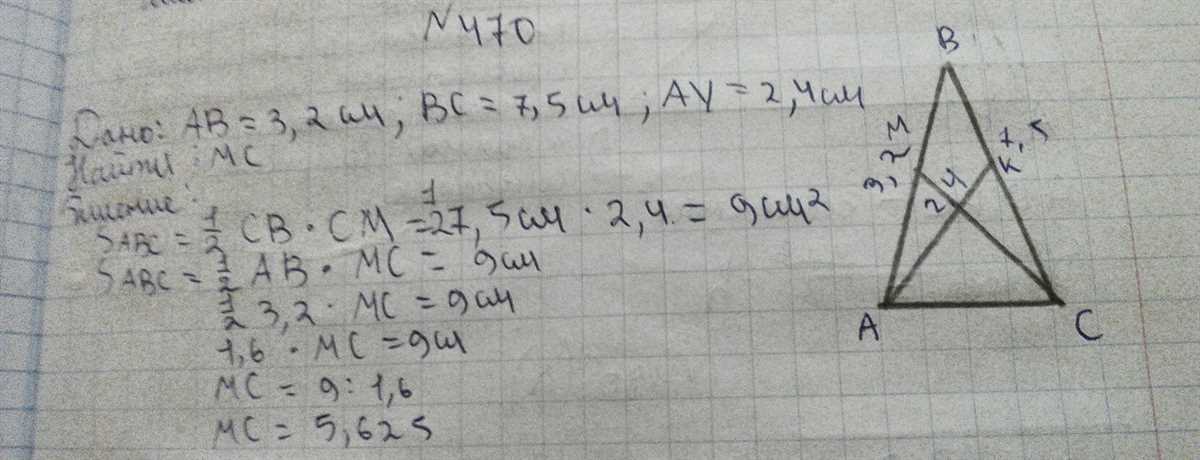 №470
Дано: AB = 3,2 см; BC = 7,5 см; AY = 2,4 см
Найти: MC
Решение:
S ABC = 1/2 CB · CM = 1/2 7,5 см · 2,4 = 9 см²
S ABC = 1/2 AB · MC = 9 см
1/2 3,2 · MC = 9 см
1,6 · MC = 9 см
MC = 9 : 1,6
MC = 5,625
B
M
7,5
K
2,4
A
C